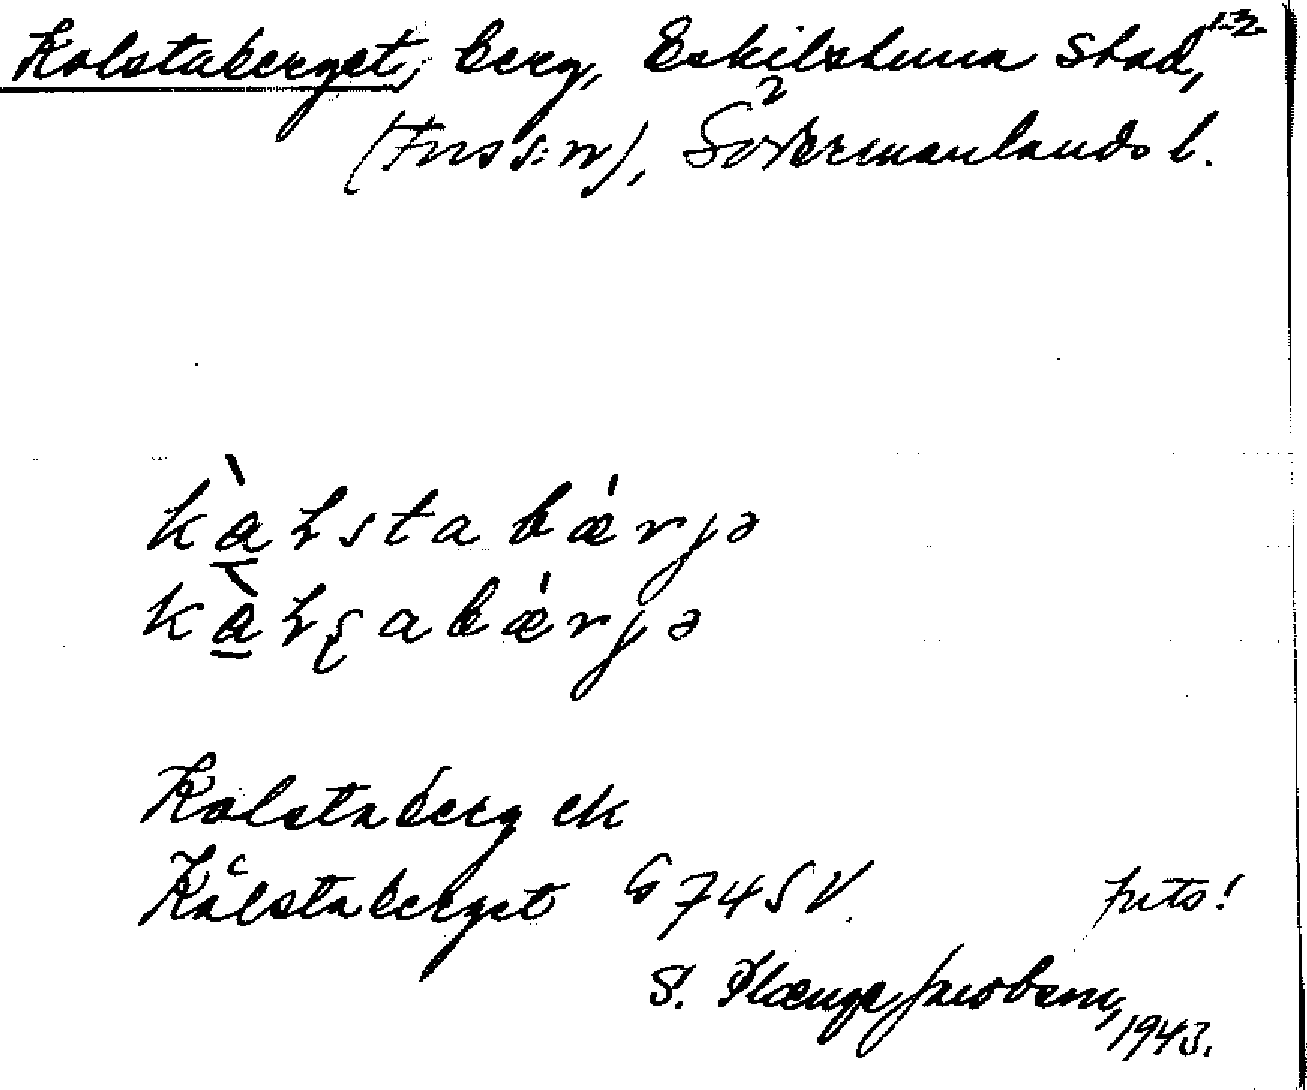 Kolstaberget, berg, Eskilstuna stad, 1-3
(Fors s:n), Södermanlands l. 2
kàlstabǽrjə
kàlʂabǽrjə
Kolstaberg ek
Kålstaberget G 74 SV.
S. Hænge Jacobsen, 1943.